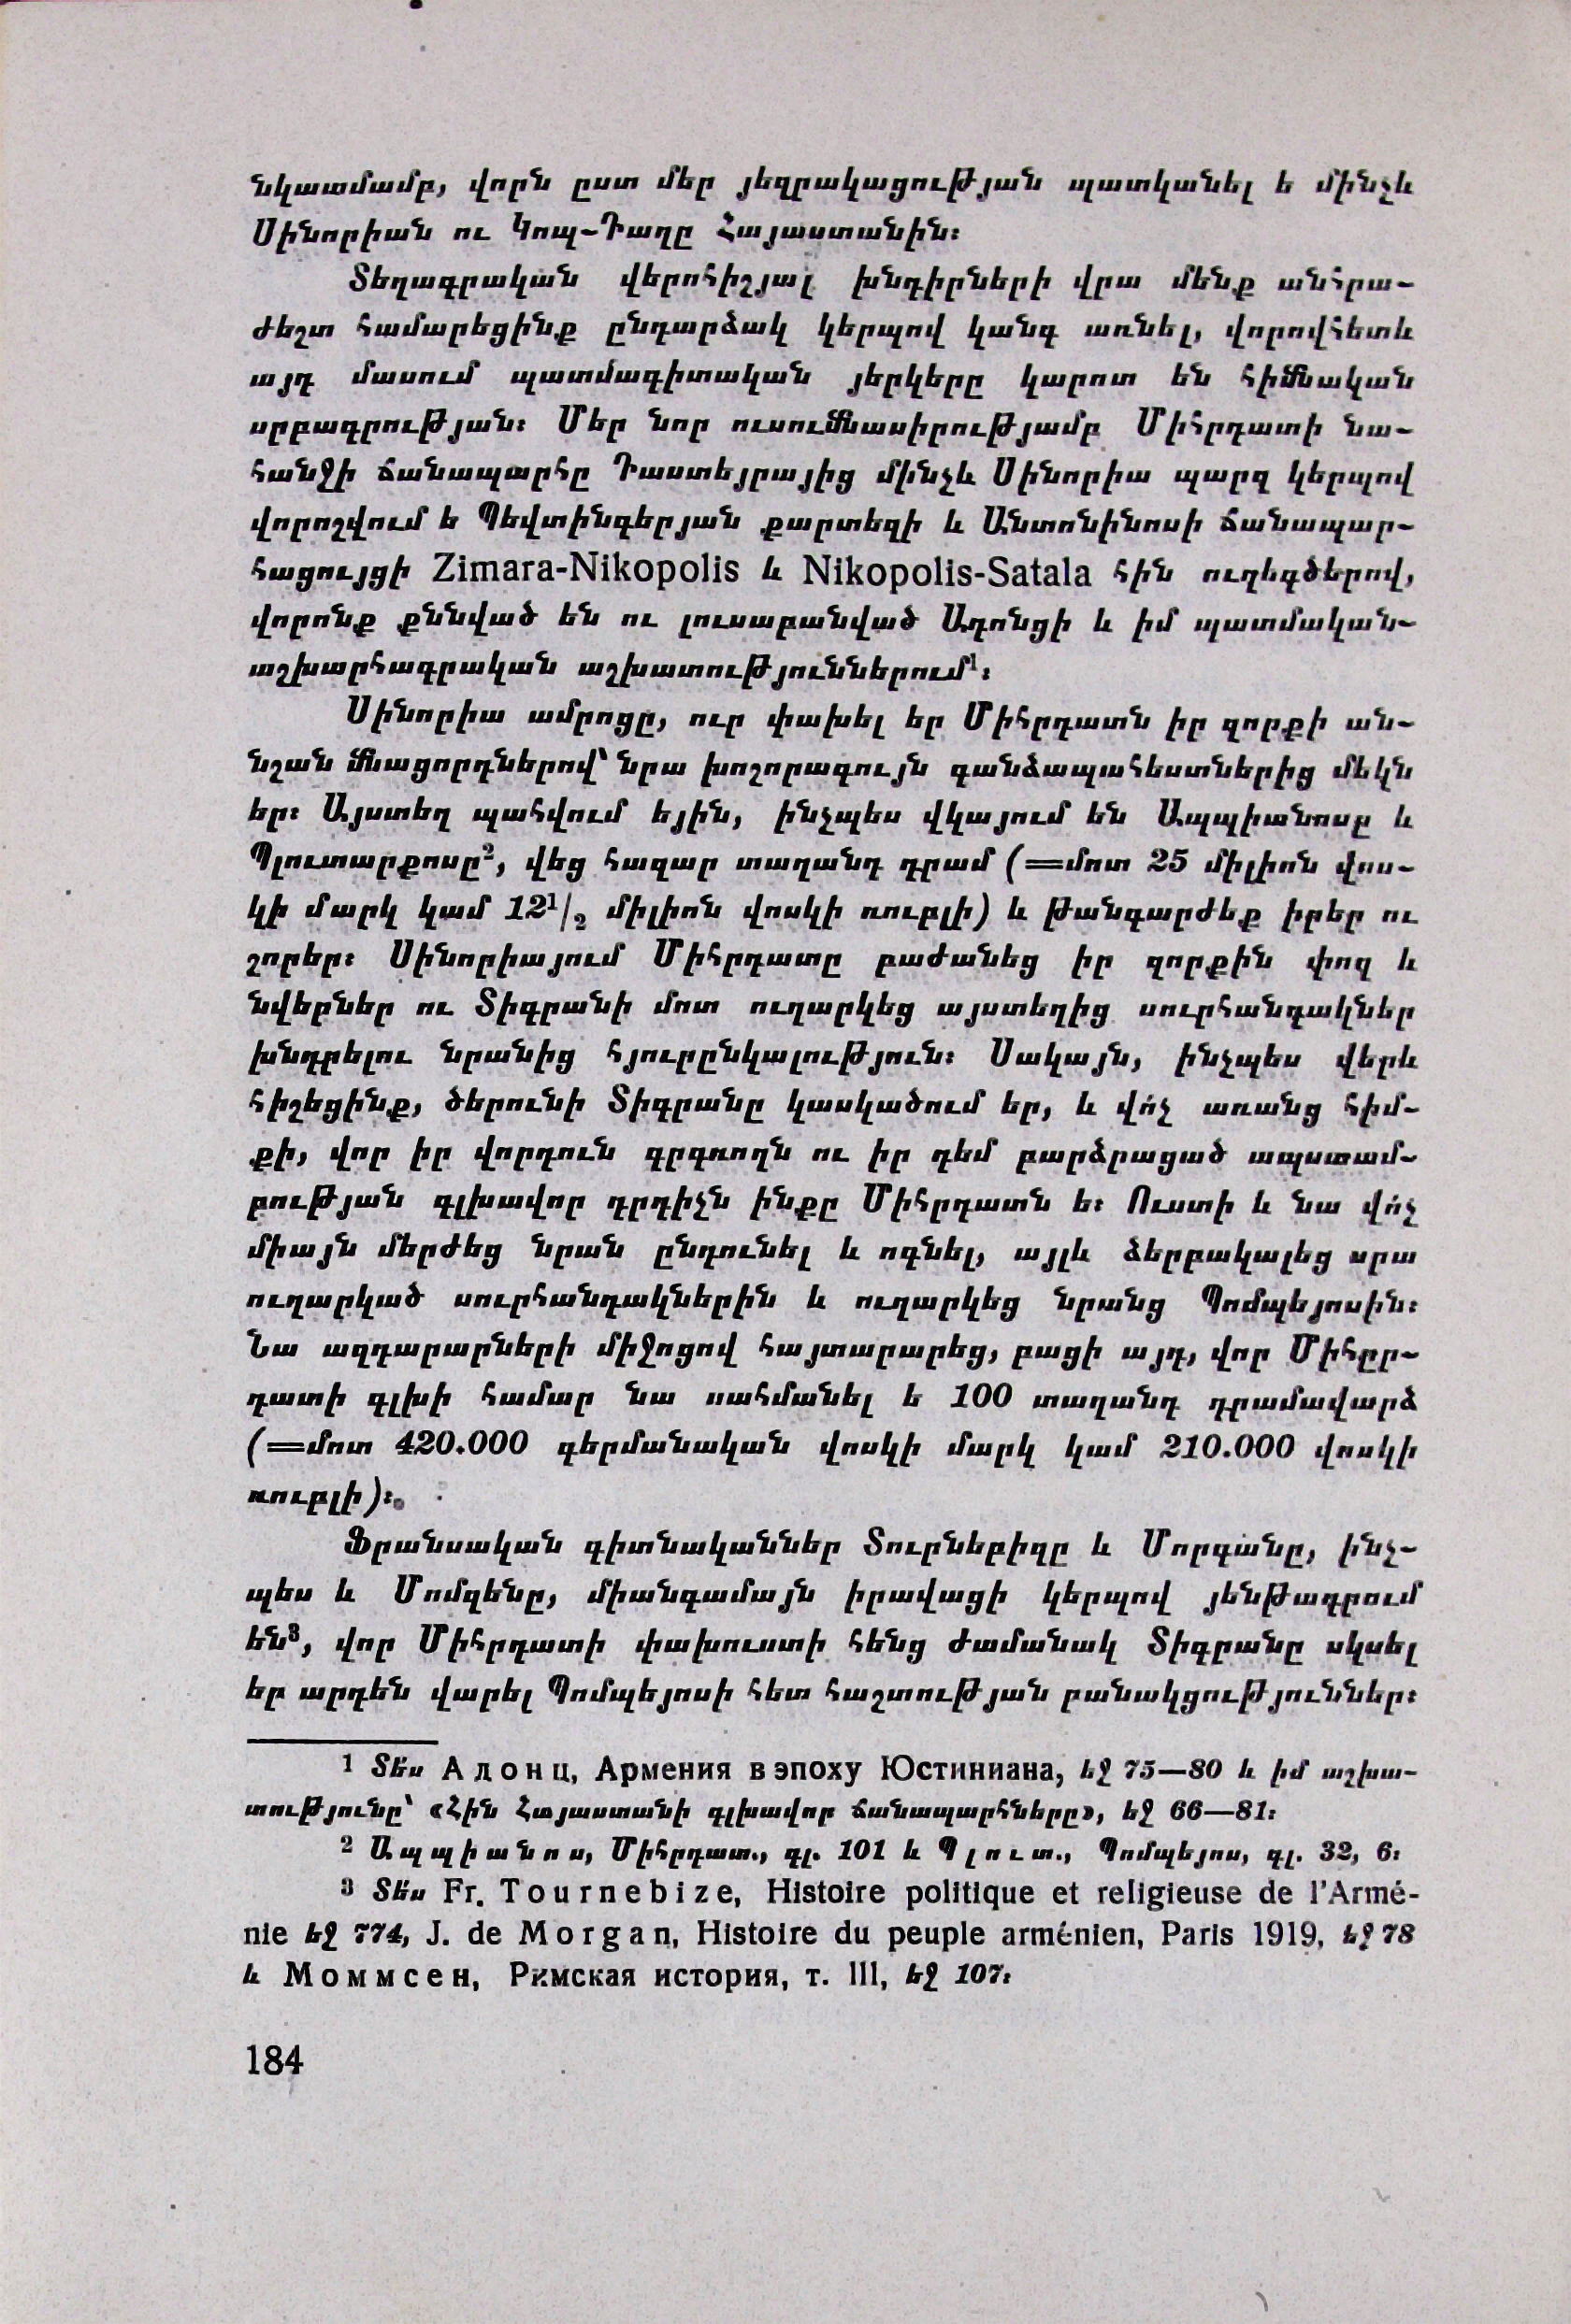 նկատմամբ, վորն ըստ մեր յեզրակացության պատկանել ե մինչև
Սինորիան ու Կոպ-Դաղը Հայաստանին։
Տեղագրական վերոհիշյալ խնդիրների վրա մենք անհրա-
ժեշտ համարեցինք ընդարձակ կերպով կանգ առնել, վորովհետև
այդ մասում պատմագիտական յերկերը կարոտ են հիմնական
սրբագրության։ Մեր նոր ուսումնասիրությամբ Միհրդատի նա-
հանջի ճանապարհը Դաստեյրայից մինչև Սինորիա պարզ կերպով
վորոշվում ե Պեվտինգերյան քարտեզի և Անտոնինոսի ճանապար-
հացույցի Zimara-Nikopolis և Nikopolis-Satala հին ուղեգծերով,
վորոնք քննված են ու լուսաբանված Ադոնցի և իմ պատմական-
աշխարհագրական աշխատություններում¹։
Սինորիա ամրոցը, ուր փախել եր Միհրդատն իր զորքի ան-
նշան մնացորդներով՝ նրա խոշորագույն գանձապահեստներից մեկն
եր։ Այստեղ պահվում եյին, ինչպես վկայում են Ապպիանոսը և
Պլուտարքոսը², վեց հազար տաղանդ դրամ (=մոտ 25 միլիոն վոս-
կի մարկ կամ 12¹/₂ միլիոն վոսկի ռուբլի) և թանգարժեք իրեր ու
շորեր։ Սինորիայում Միհրդատը բաժանեց իր զորքին փող և
նվերներ ու Տիգրանի մոտ ուղարկեց այստեղից սուրհանդակներ
խնդրելու նրանից հյուրընկալություն։ Սակայն, ինչպես վերև
հիշեցինք, ծերունի Տիգրանը կասկածում եր, և վո՛չ առանց հիմ-
քի, վոր իր վորդուն գրգռողն ու իր դեմ բարձրացած ապստամ-
բության գլխավոր դրդիչն ինքը Միհրդատն ե։ Ուստի և նա վո՛չ
միայն մերժեց նրան ընդունել և ոգնել, այլև ձերբակալեց սրա
ուղարկած սուրհանդակներին և ուղարկեց նրանց Պոմպեյոսին։
Նա ազդարարների միջոցով հայտարարեց, բացի այդ, վոր Միհըր-
դատի գլխի համար նա սահմանել ե 100 տաղանդ դրամավարձ
(=մոտ 420.000 գերմանական վոսկի մարկ կամ 210.000 վոսկի
ռուբլի)։
Ֆրանսական գիտնականներ Տուրնեբիզը և Մորգանը, ինչ-
պես և Մոմզենը, միանգամայն իրավացի կերպով յենթադրում
են³, վոր Միհրդատի փախուստի հենց ժամանակ Տիգրանը սկսել
եր արդեն վարել Պոմպեյոսի հետ հաշտության բանակցություններ։
1 Տե՛ս Адонц, Армения в эпоху Юстиниана, եջ 75—80 և իմ աշխա-
տությունը՝ «Հին Հայաստանի գլխավոր ճանապարհները», եջ 66—81։
2 Ապպիանոս, Միհրդատ., գլ. 101 և Պլուտ., Պոմպեյոս, գլ. 32, 6։
3 Տե՛ս Fr. Tournebize, Histoire politique et religieuse de l'Armé-
nie եջ 774, J. de Morgan, Histoire du peuple arménien, Paris 1919, եջ 78
և Моммсен, Римская история, т. III, եջ 107։
184